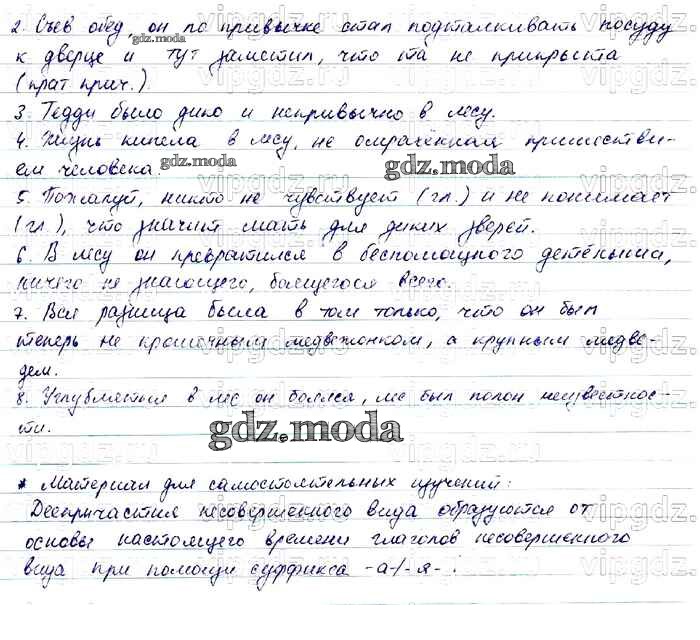 2. Съев обед, он по привычке стал подталкивать посуду
к дверце и тут заметил, что та не прикрыта
(крат. прич.).
3. Тедди было дико и непривычно в лесу.
4. Жизнь кипела в лесу, не омрачённая пришестви-
ем человека.
5. Пожалуй, никто не чувствует (гл.) и не понимает
(гл.), что значит мать для диких зверей.
6. В лесу он превратился в беспомощного детёныша,
ничего не знающего, боящегося всего.
7. Вся разница была в том только, что он был
теперь не крошечным медвежонком, а крупным медве-
дем.
8. Углубляться в лес он боялся, лес был полон неизвестнос-
ти.
gdz.moda
* Материал для самостоятельных изучений:
Деепричастия несовершенного вида образуются от
основы настоящего времени глаголов несовершенного
вида при помощи суффикса -а-/-я- .